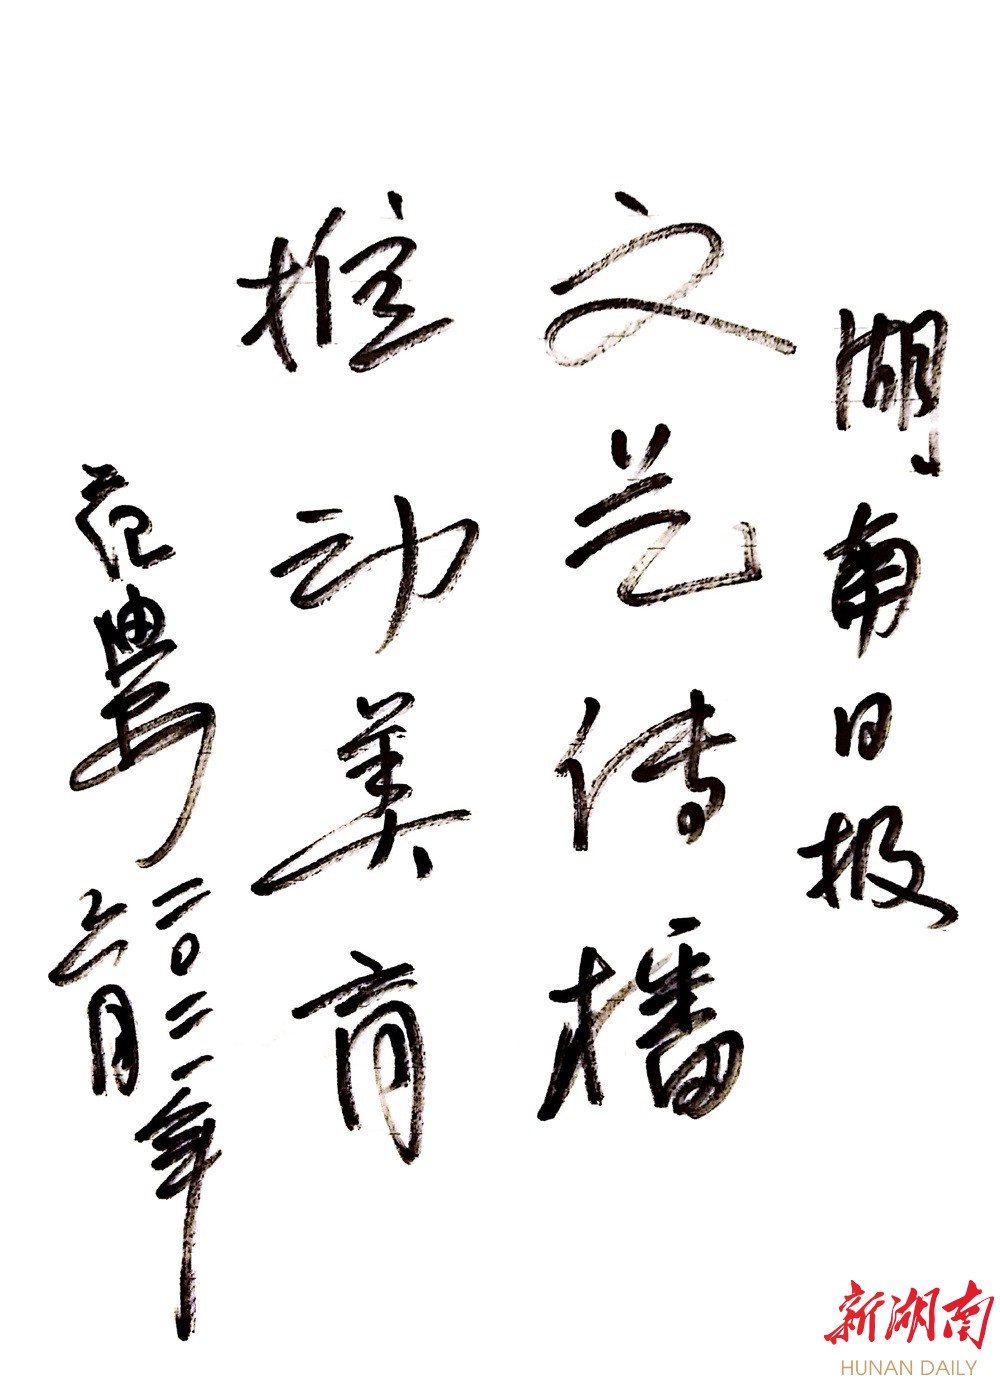 湖南日报
文艺传播
推动美育
范迪安
二〇二一年
六月
新湖南
HUNAN DAILY